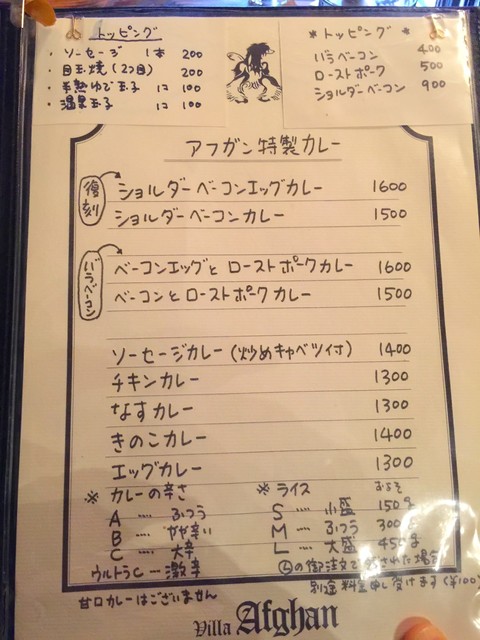 トッピング
・ソーセージ 1本 200
・目玉焼(2コ目) 200
・半熟ゆで玉子 1コ 100
・温泉玉子 1コ 100
* トッピング *
バラベーコン 400
ローストポーク 500
ショルダーベーコン 900
アフガン特製カレー
復刻
ショルダーベーコンエッグカレー 1600
ショルダーベーコンカレー 1500
バラベーコン
ベーコンエッグとローストポークカレー 1600
ベーコンとローストポークカレー 1500
ソーセージカレー(炒めキャベツ付) 1400
チキンカレー 1300
なすカレー 1300
きのこカレー 1400
エッグカレー 1300
※カレーの辛さ
A ---- ふつう
B ---- やや辛い
C ---- 大辛
ウルトラC --- 激辛
甘口カレーはございません
※ライス およそ
S ---- 小盛 150g
M ---- ふつう 300g
L ---- 大盛 450g
Ⓛの御注文で残された場合
別途料金申し受けます(¥100)
Villa Afghan